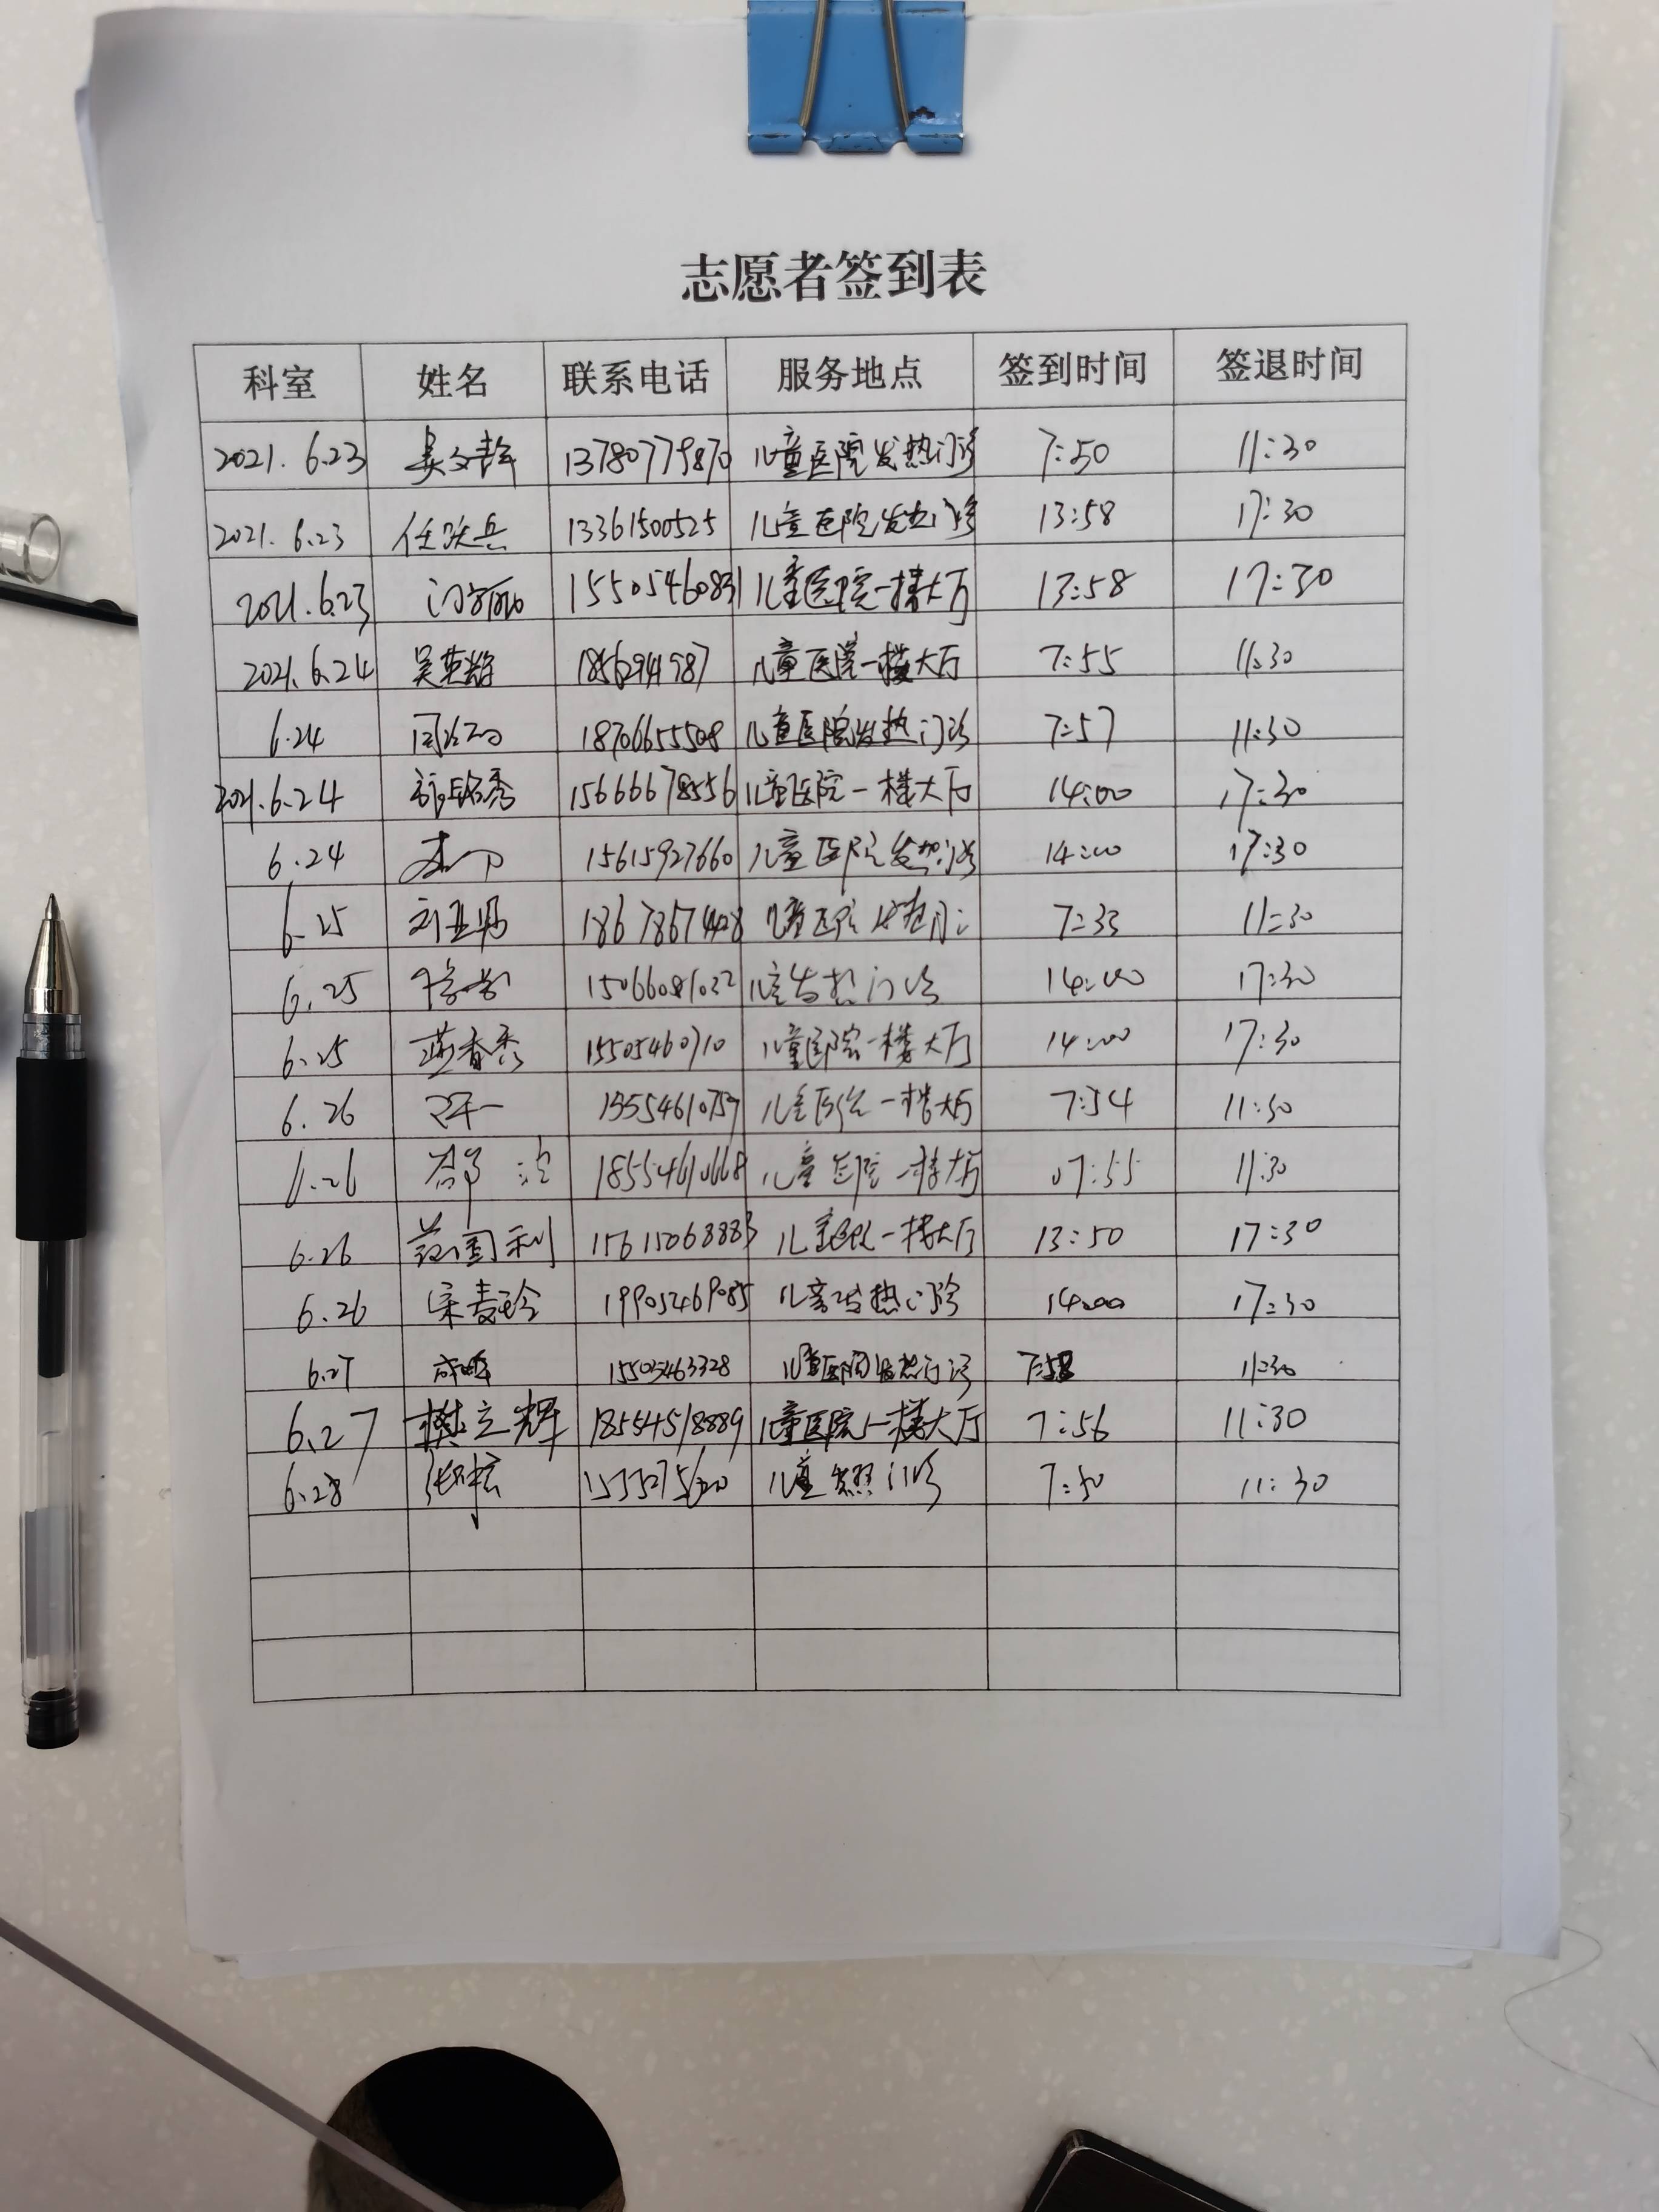 志愿者签到表
科室 姓名 联系电话 服务地点 签到时间 签退时间
2021. 6.23 13780779870 儿童医院发热门诊 7:50 11:30
2021. 6.23 任跃兵 13361500525 儿童医院发热门诊 13:58 17:30
2021. 6.23 15505460831 儿童医院一楼大厅 13:58 17:30
2021. 6.24 儿童医院一楼大厅 7:55 11:30
6.24 18706655508 儿童医院发热门诊 7:57 11:30
2021. 6.24 15666678556 儿童医院一楼大厅 14:00 17:30
6.24 15615927660 儿童医院发热门诊 14:00 17:30
6.25 儿童医院 7:33 11:30
6.25 儿童发热门诊 14:00 17:30
6.25 15505460710 儿童医院一楼大厅 14:00 17:30
6.26 儿童医院一楼大厅 7:54 11:30
6.26 18554610668 儿童医院一楼大厅 07:55 11:30
6.26 15615068883 儿童医院一楼大厅 13:50 17:30
6.26 19905469085 儿童发热门诊 14:00 17:30
6.27 15505463328 儿童医院发热门诊 7:58 11:30
6.27 樊立辉 18554518889 儿童医院一楼大厅 7:56 11:30
6.28 儿童发热门诊 7:50 11:30